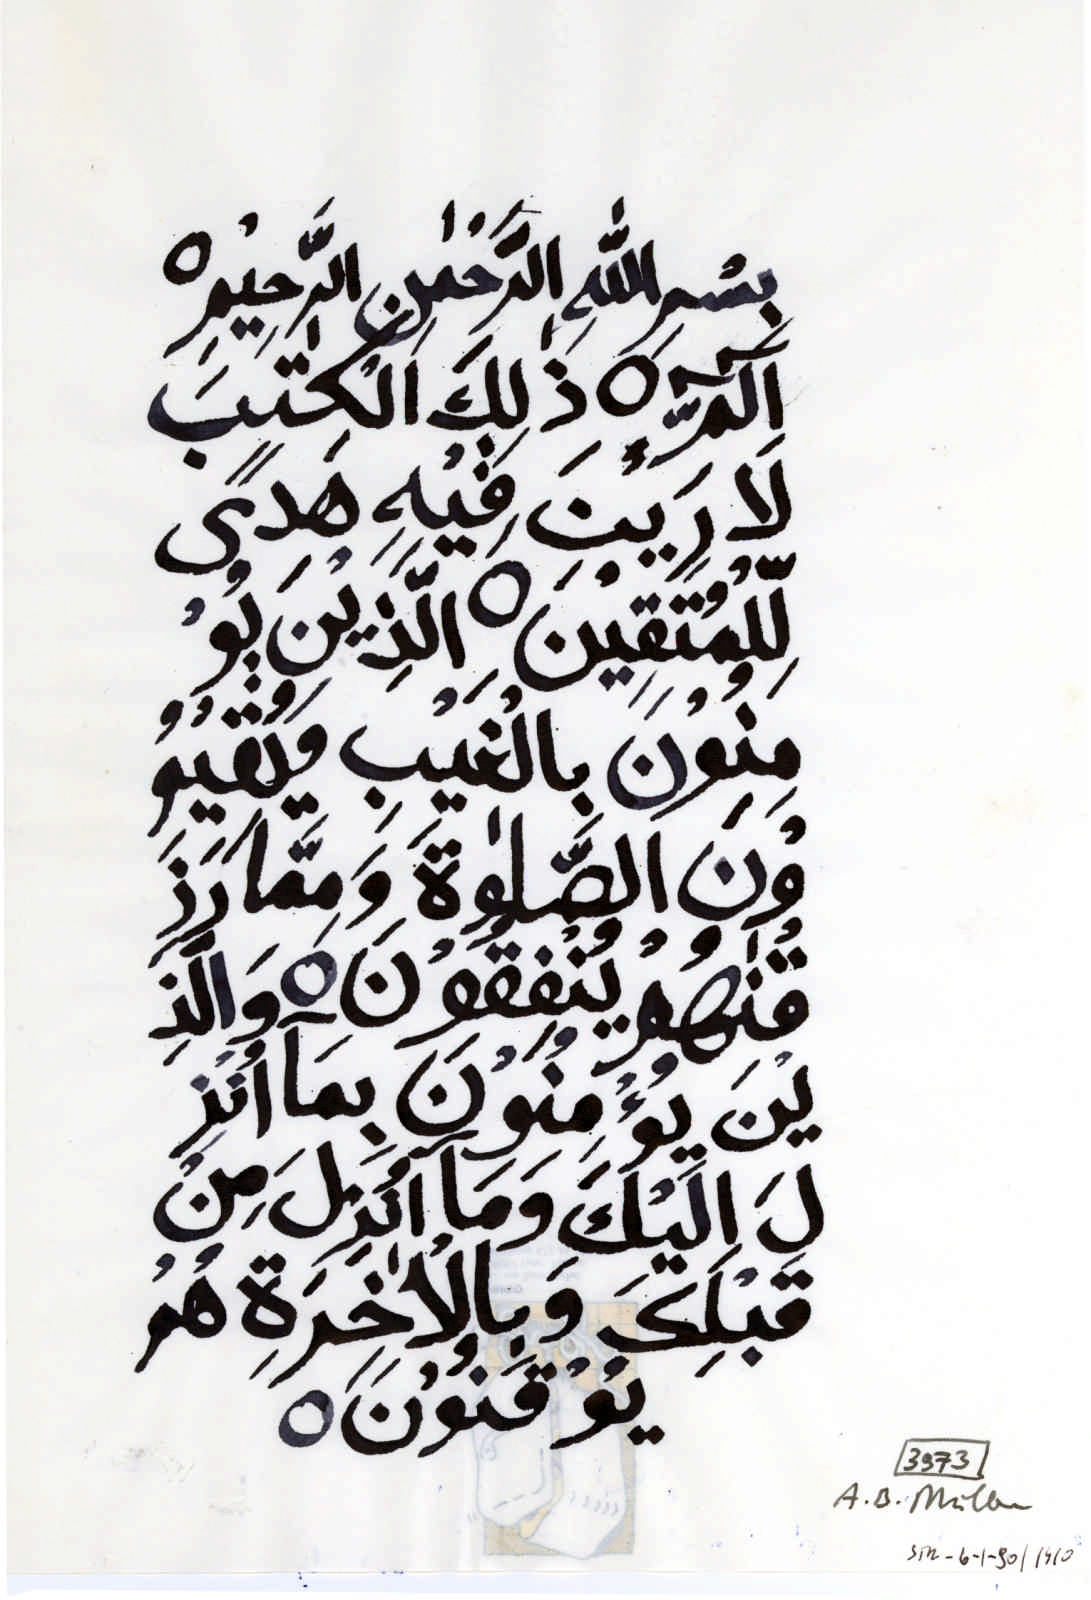 بِسْمِ اللّٰهِ الرَّحْمٰنِ الرَّحِيْمِ ○
الٓمّٓ ○ ذٰلِكَ الْكِتٰبَ
لَا رَيْبَ فِيْهِ هُدًى
لِّلْمُتَّقِيْنَ ○ الَّذِيْنَ يُوْ
مِنُوْنَ بِالْغَيْبِ وَيُقِيْمُ
وْنَ الصَّلٰوةَ وَمِمَّا رَزَ
قْنٰهُمْ يُنْفِقُوْنَ ○ وَالَّذِ
يْنَ يُؤْمِنُوْنَ بِمَآ اُنْزِ
لَ اِلَيْكَ وَمَآ اُنْزِلَ مِنْ
قَبْلِكَ وَبِالْاٰخِرَةِ هُمْ
يُوْقِنُوْنَ ○
3973
A.B.